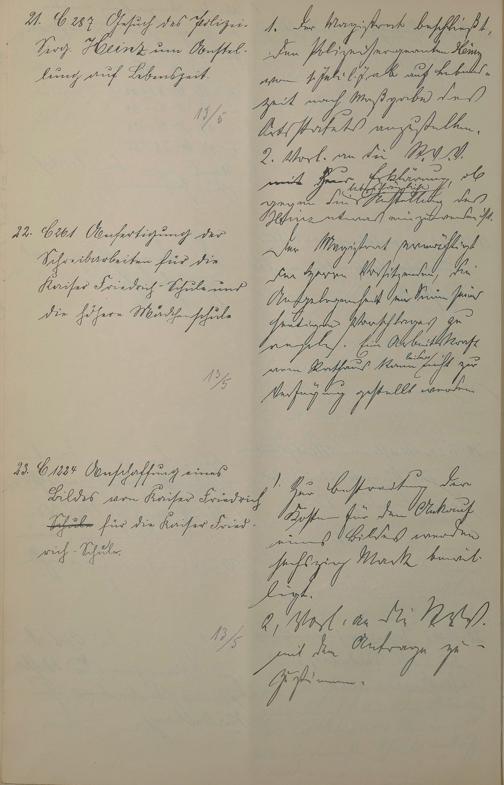 21. C 287 Gesuch des Polizei-
Serg. Heinz um Anstel-
lung auf Lebenszeit.
13/5
1. Der Magistrat beschließt,
den Polizeisergeanten Heinz
vom 1. Juli ab auf Lebens-
zeit nach Maßgabe des
Ortsstatuts anzustellen.
2. Vorl. an die St.V.V.
mit Erklärung, ob
gegen die Anstellung des
Heinz etwas einzuwenden ist.
22. C 261 Anfertigung der
Schreibarbeiten für die
Kaiser Friedrich-Schule und
die höhere Mädchenschule
13/5
Der Magistrat ermächtigt
den Herrn Vorsitzenden, die
Angelegenheit im Sinne seines
heutigen Vorschlages zu
regeln. Eine Arbeitskraft
vom Rathaus kann leider nicht zur
Verfügung gestellt werden
23. C 1224 Anschaffung eines
Bildes von Kaiser Friedrich
Schule für die Kaiser Fried-
rich-Schule.
13/5
1. Zur Bestreitung der
Kosten für den Ankauf
eines Bildes werden
sechszig Mark bewil-
ligt.
2, Vorl. an die St.V.V.
mit dem Antrage zu-
zustimmen.